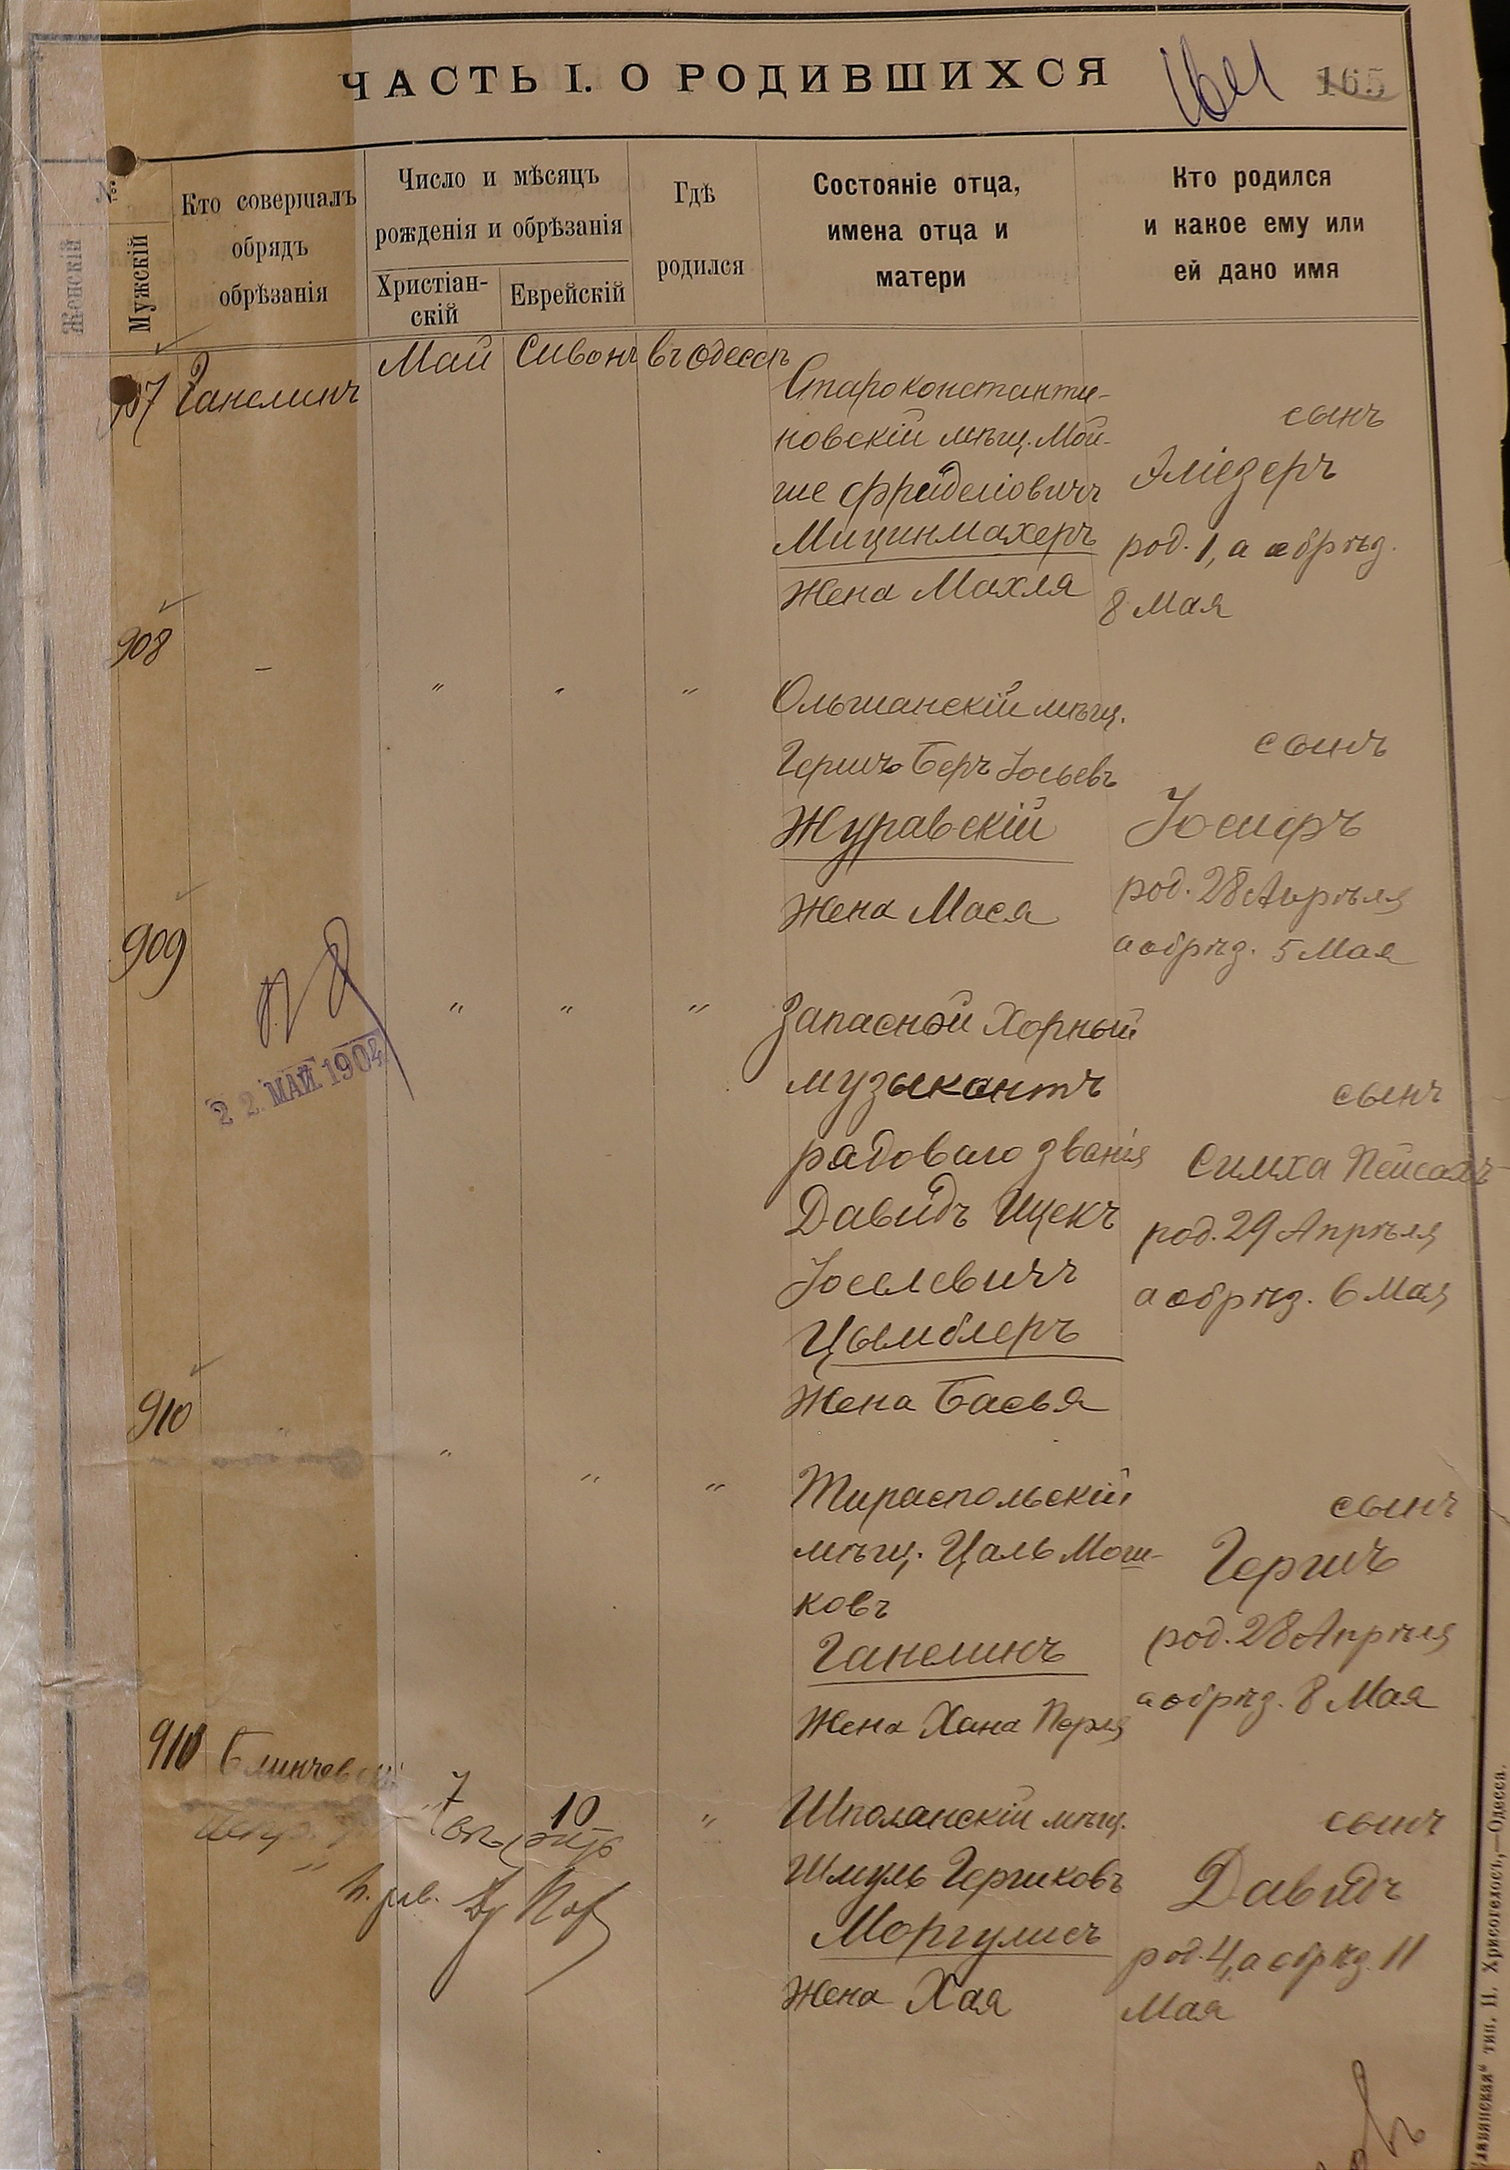 ЧАСТЬ I. О РОДИВШИХСЯ
165
№
Женскій
Мужскій
Кто совершалъ
обрядъ
обрѣзанія
Число и мѣсяцъ
рожденія и обрѣзанія
Христіан-
скій
Еврейскій
Гдѣ
родился
Состояніе отца,
имена отца и
матери
Кто родился
и какое ему или
ей дано имя
907 Ганелинъ
Май Сивонъ въ Одессѣ
Староконстанти-
новскій мѣщ. Мой-
ше Фрйделіовичъ
Мицинмахеръ
Жена Махля
сынъ
Эліезеръ
род. 1, а обрѣз.
8 Мая
908
–
" " "
Ольшанскій мѣщ.
Гершъ Беръ Іосьевъ
Журавскій
Жена Мася
сынъ
Іосифъ
род. 28 Апрѣля
а обрѣз. 5 Мая
909
22 МАЙ 1904
" " "
Запасной Хорный
музыкантъ
радоваго званія
Давидъ Ицекъ
Іоселевичъ
Цымблеръ
Жена Басья
сынъ
Симха Пейсахъ
род. 29 Апрѣля
а обрѣз. 6 Мая
910
" " "
Тираспольскій
мѣщ. Цаль Мош-
ковъ
Ганелинъ
Жена Хана Перля
сынъ
Гершъ
род. 28 Апрѣля
а обрѣз. 8 Мая
910 Блинчевскій
7
10
"
Шполанскій мѣщ.
Шмуль Гершковъ
Моргулисъ
Жена Хая
сынъ
Давидъ
род. 4, а обрѣз. 11
Мая
Славянская" тип. Н. Хрисогелосъ,—Одесса.